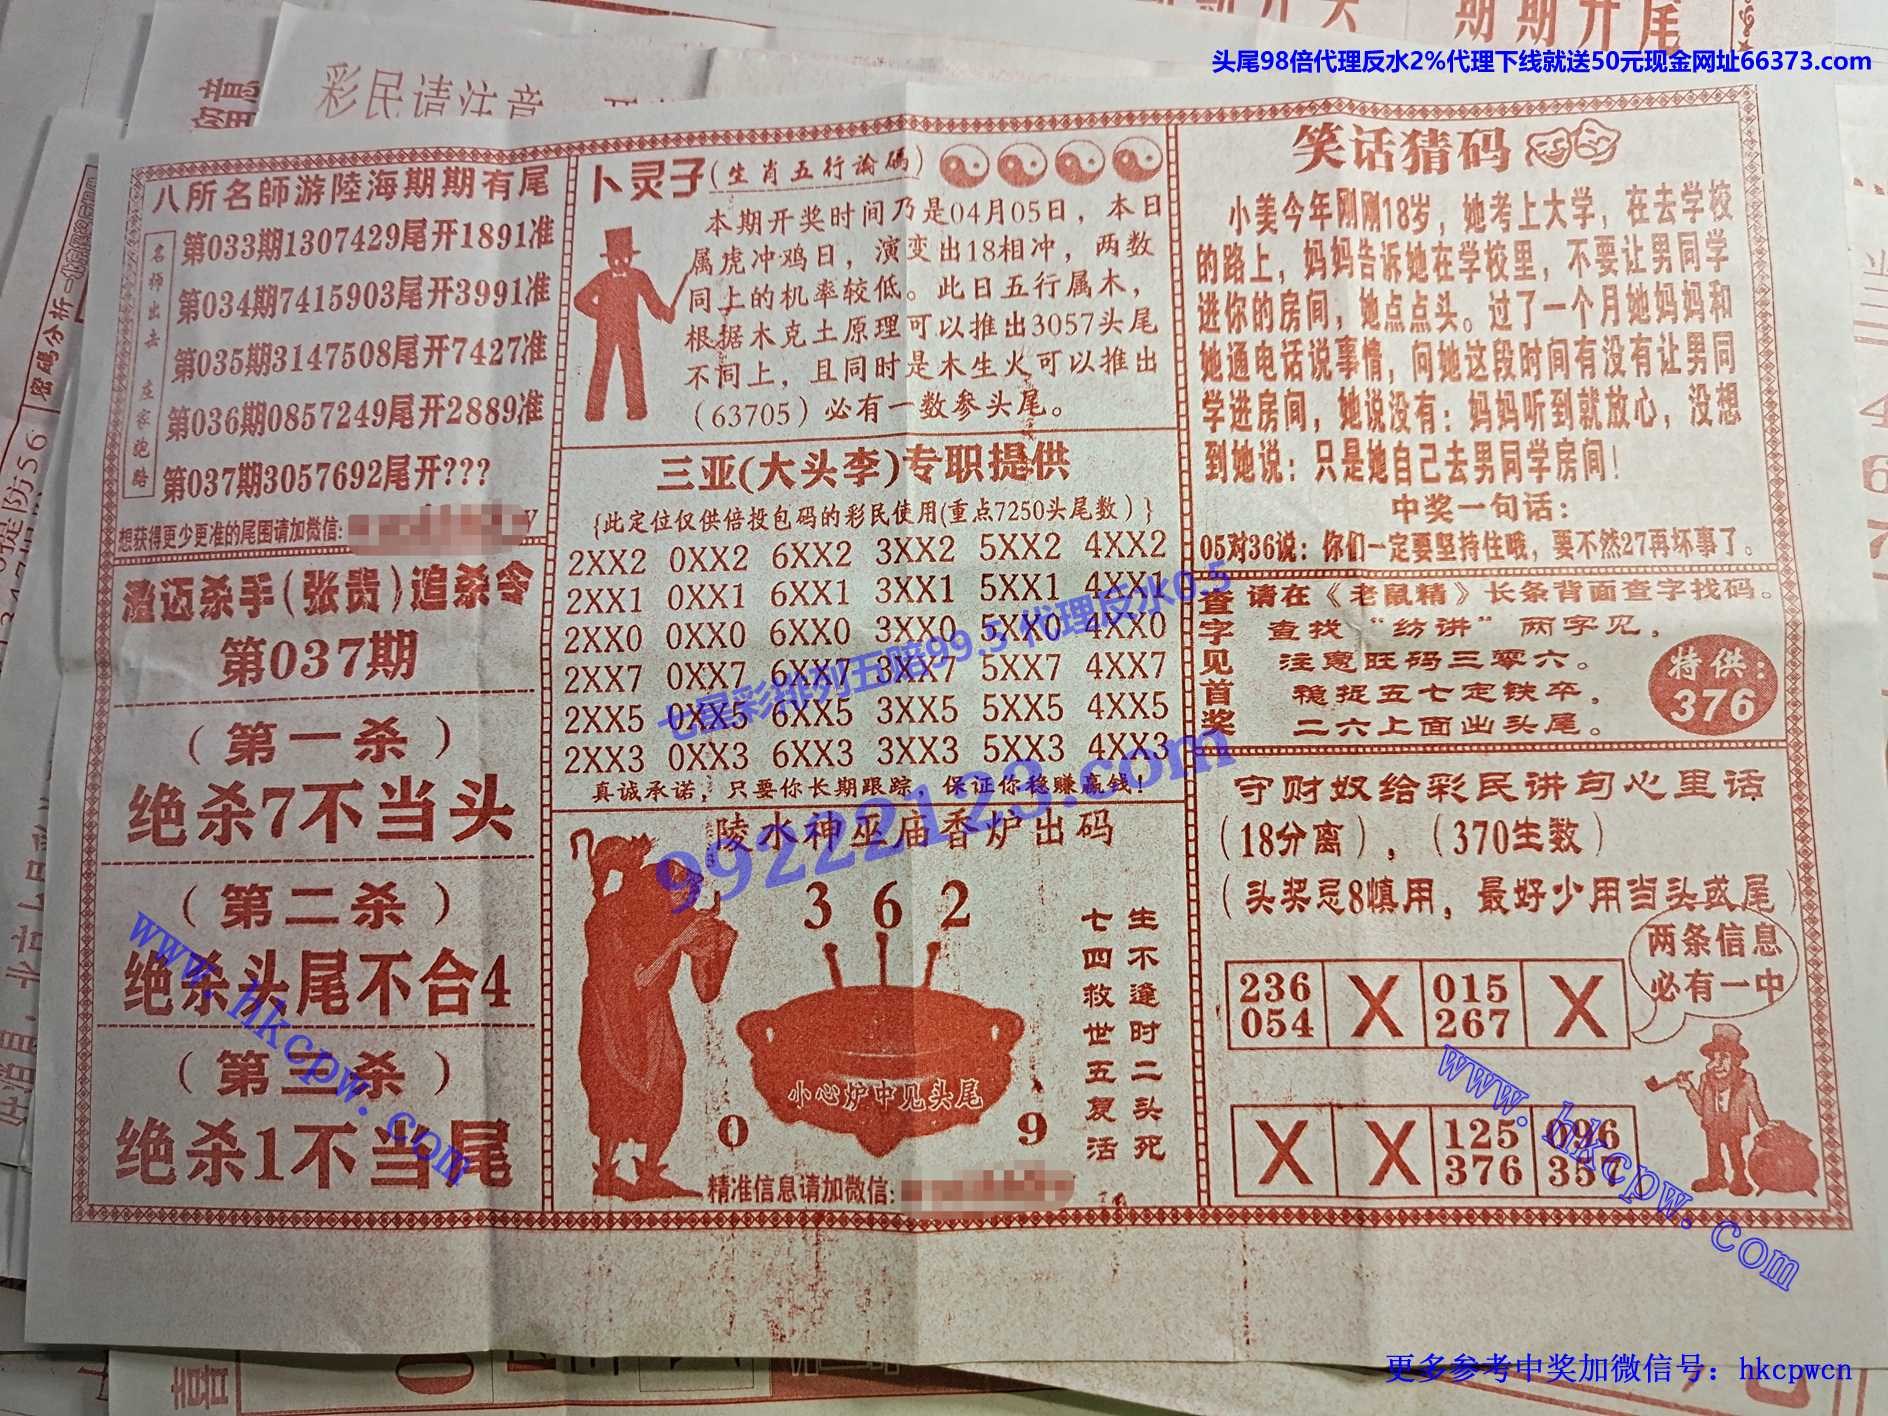 头尾98倍代理反水2%代理下线就送50元现金网址66373.com
期期开尾
彩民请注意
八所名師游陸海期期有尾
名师出去 庄家跑路
第033期1307429尾开1891准
第034期7415903尾开3991准
第035期3147508尾开7427准
第036期0857249尾开2889准
第037期3057692尾开???
想获得更少更准的尾围请加微信:
澄迈杀手(张贵)追杀令
第037期
(第一杀)
绝杀7不当头
(第二杀)
绝杀头尾不合4
(第三杀)
绝杀1不当尾
卜灵子(生肖五行论码)
本期开奖时间乃是04月05日，本日
属虎冲鸡日，演变出18相冲，两数
同上的机率较低。此日五行属木，
根据木克土原理可以推出3057头尾
不同上，且同时是木生火可以推出
(63705)必有一数参头尾。
三亚(大头李)专职提供
{此定位仅供倍投包码的彩民使用(重点7250头尾数)}
2XX2 0XX2 6XX2 3XX2 5XX2 4XX2
2XX1 0XX1 6XX1 3XX1 5XX1 4XX1
2XX0 0XX0 6XX0 3XX0 5XX0 4XX0
2XX7 0XX7 6XX7 3XX7 5XX7 4XX7
2XX5 0XX5 6XX5 3XX5 5XX5 4XX5
2XX3 0XX3 6XX3 3XX3 5XX3 4XX3
真诚承诺，只要你长期跟踪，保证你稳赚赢钱!
七星彩排列五赔99.5 代理反水0.5
99222123.com
陵水神巫庙香炉出码
3 6 2
生不逢时二头死
七四救世五复活
小心炉中见头尾
0 9
精准信息请加微信:
笑话猜码
小美今年刚刚18岁，她考上大学，在去学校
的路上，妈妈告诉她在学校里，不要让男同学
进你的房间，她点点头。过了一个月她妈妈和
她通电话说事情，问她这段时间有没有让男同
学进房间，她说没有：妈妈听到就放心，没想
到她说：只是她自己去男同学房间!
中奖一句话:
05对36说：你们一定要坚持住哦，要不然27再坏事了。
查字见首奖
请在《老鼠精》长条背面查字找码。
查找“纺讲”两字见，
注意旺码三零六。
稳捉五七定铁卒，
二六上面出头尾。
特供:
376
守财奴给彩民讲句心里话
(18分离)，(370生数)
(头奖忌8慎用，最好少用当头或尾)
两条信息
必有一中
236 X 015 X
054 267
X X 125 096
376 357
www.hkcpw.com
www.hkcpw.com
更多参考中奖加微信号：hkcpwcn